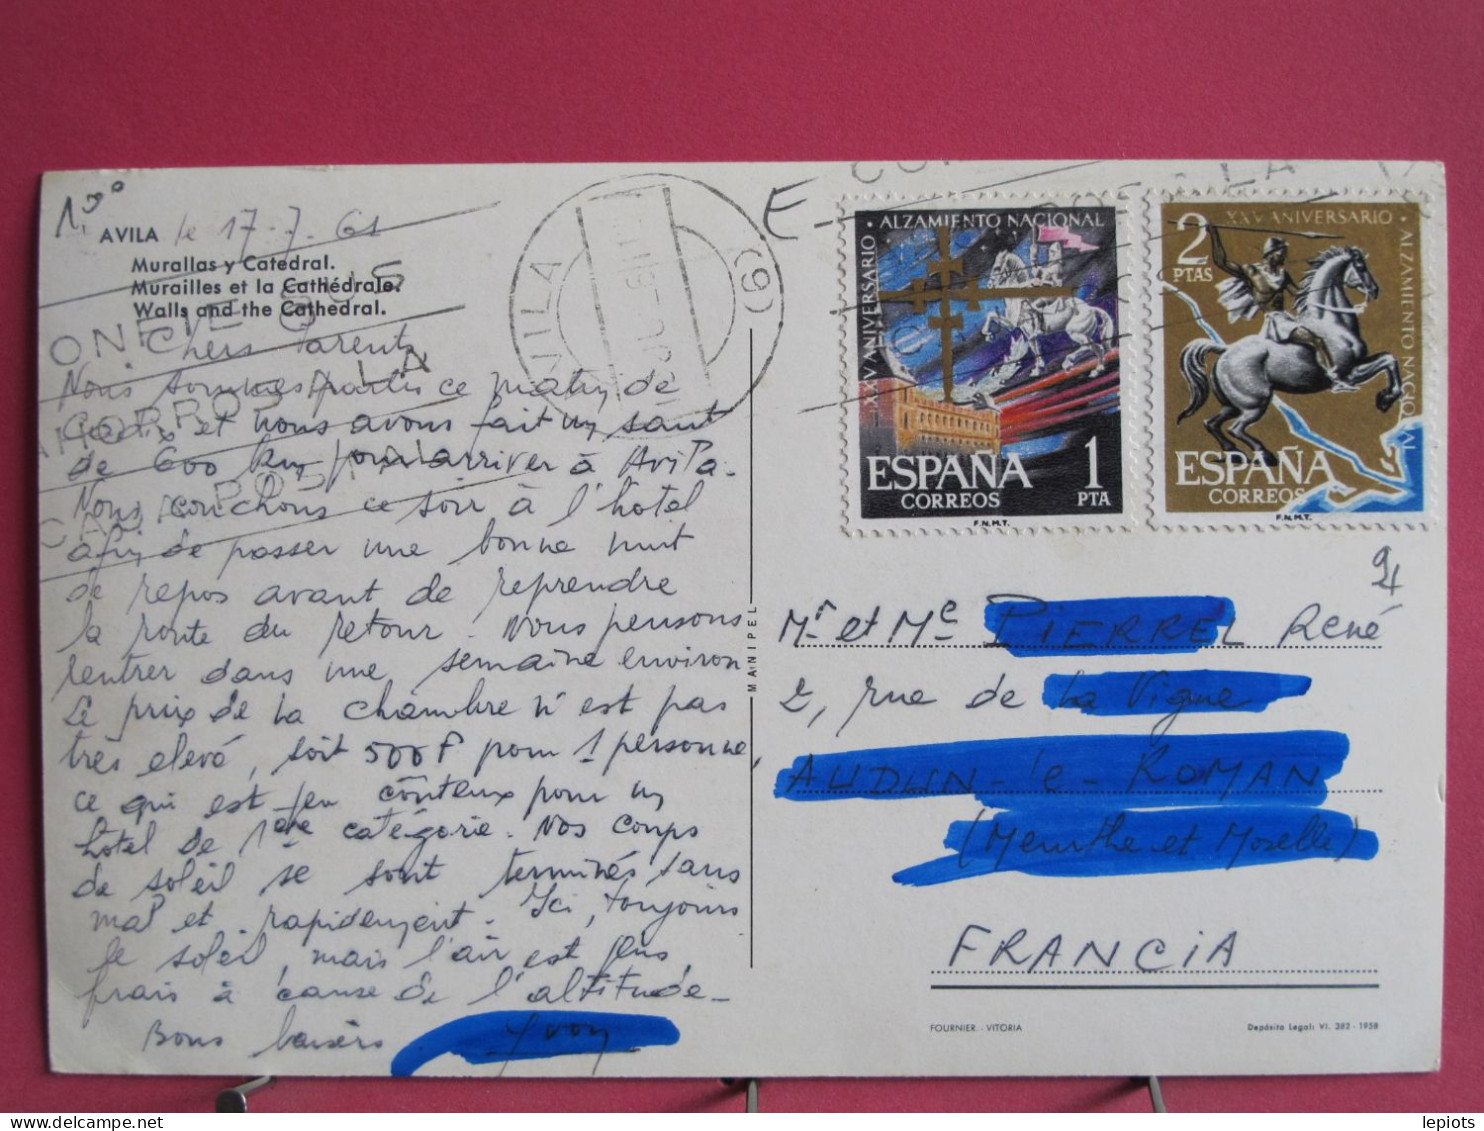 AVILA le 17-7-61
Murallas y Catedral.
Murailles et la Cathédrale.
Walls and the Cathedral.
Chers Parents
Nous sommes partis ce matin de
et nous avons fait un saut
de 600 km pour arriver à Avila.
Nous couchons ce soir à l'hotel
afin de passer une bonne nuit
de repos avant de reprendre
la route du retour. Nous pensons
rentrer dans une semaine environ
Le prix de la chambre n'est pas
très elevé, soit 500F pour 1 personne,
ce qui est peu couteux pour un
hotel de 1ère catégorie. Nos coups
de soleil se sont terminés sans
mal et rapidement. Ici, toujours
le soleil, mais l'air est plus
frais à cause de l'altitude-
Bons baisers Yvon
MANIPEL
AVILA
(9)
XXV ANIVERSARIO · ALZAMIENTO NACIONAL
ESPAÑA
CORREOS
1
PTA
F.N.M.T.
2
PTAS
XXV ANIVERSARIO · ALZAMIENTO NACIONAL
ESPAÑA
CORREOS
F.N.M.T.
Mr et Me PIERREL René
2, rue de la Vigne
AUDUN-le-ROMAN
(Meurthe et Moselle)
FRANCIA
FOURNIER. - VITORIA
Depósito Legal: VI. 383 - 1958
lepiots